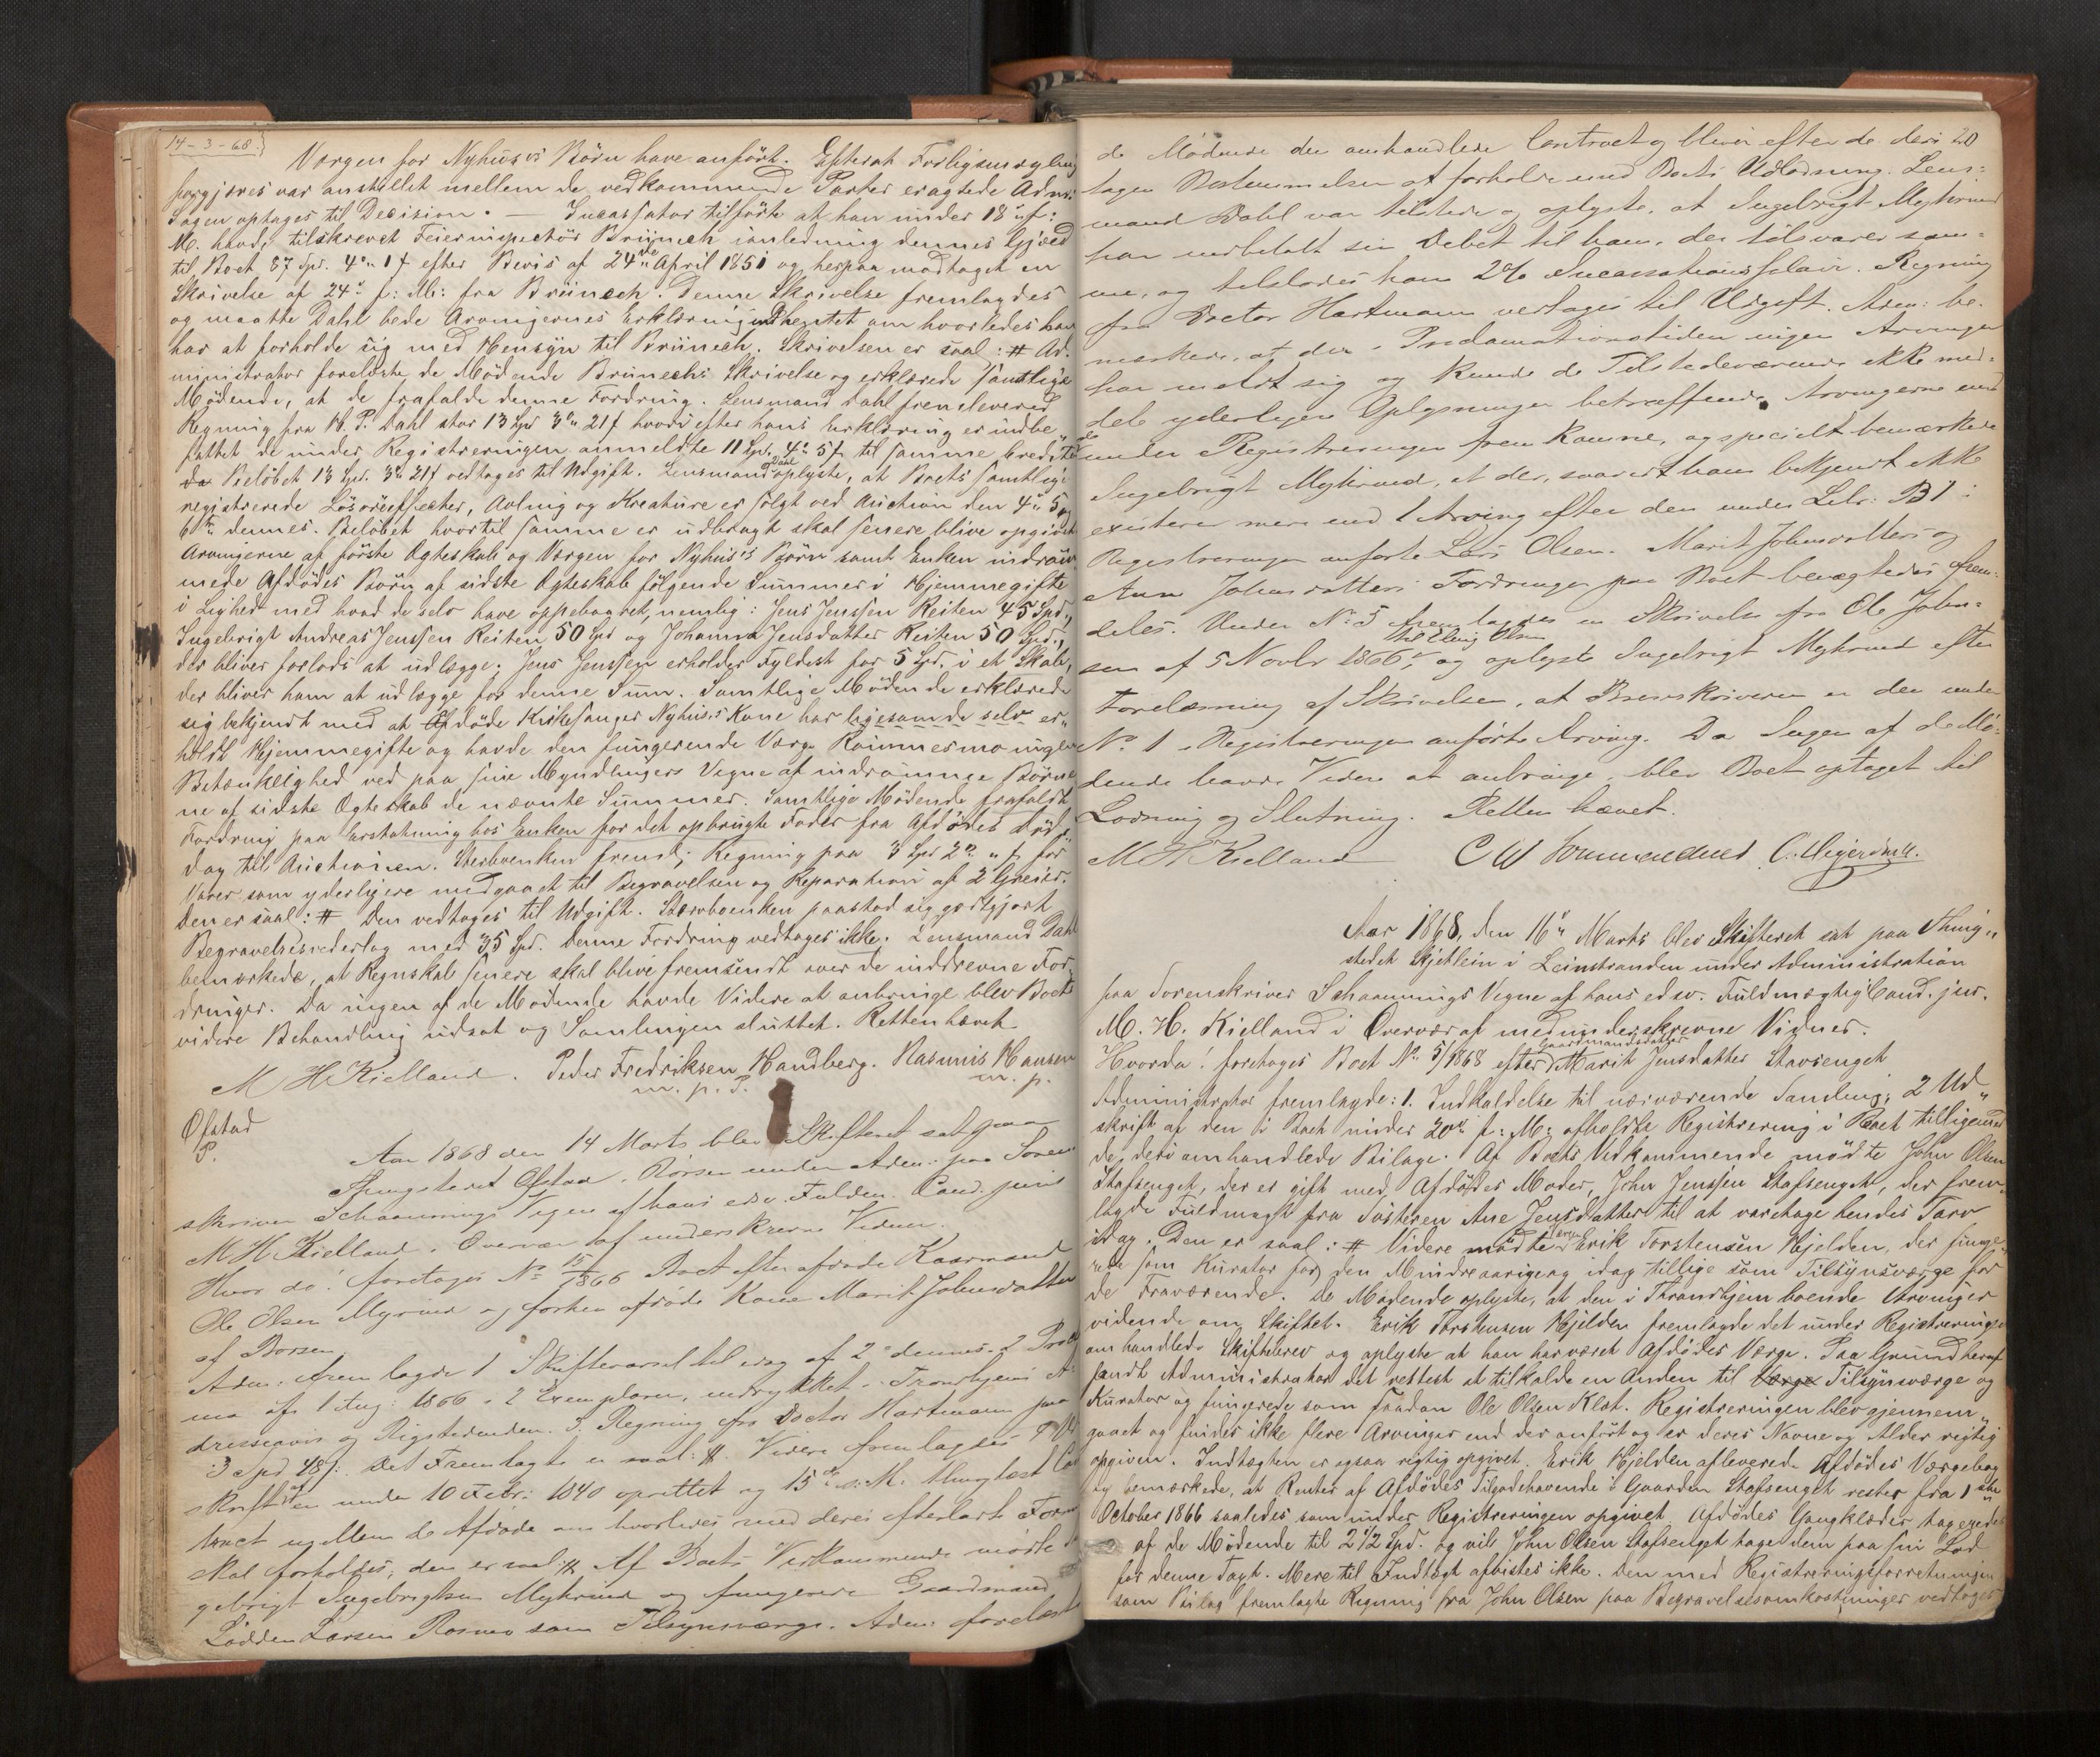 14-3-68.
Værgen for Nyhus's Børn have anført. Efterat Forligsmægling
forgjæves var anstillet mellem de vedkommende Parter eragtede Adm:
Sagen optages til Decision. — Incassator tilførte at han under 18de f:
M. havde tilskrevet Feierinspectør Brünech i anledning dennes Gjæld
til Boet 87 Spd. 4 ort 1 f efter Bevis af 24de April 1851 og herpaa modtaget en
Skrivelse af 24de f: M: fra Brünech. Denne Skrivelse fremlagdes
og maatte Dahl bede Arvingernes Erklæring indhentet om hvorledes han
har at forholde sig med Hensyn til Brünech. Skrivelsen er saal: # Ad-
ministrator foreløste de Mødende Brünechs Skrivelse og erklærede samtlige
Mødende, at de frafalde denne Fordring. Lensmand Dahl fremleverede
Regning fra N. P. Dahl stor 13 Spd 3 ort 21 f hvori efter hans Erklæring er indbe-
fattet de under Registreringen anmeldte 11 Spd. 4 ort 5 f til samme Kreditor
da Beløbet 13 Spd. 3 ort 21 f vedtages til Udgift. Lensmand Dahl oplyste, at Boets samtlige
registrerede Løsøreeffecter, Avling og Kreature er solgt ved Auction den 4de 5 og
6te dennes. Beløbet hvortil samme er udbragt skal senere blive opgivet
Arvingerne af første Ægteskab og Værgen for Nyhus's Børn samt Enken indrøm-
mede Afdødes Børn af sidste Ægteskab følgende Summer i Hjemmegifte
i Lighed med hvad de selv have oppebaaret, nemlig: Jens Jenssen Reiten 45 Spd.,
Ingebrigt Andreas Jenssen Reiten 50 Spd og Johanna Jensdatter Reiten 50 Spd.,
der bliver forlods at udlægge. Jens Jenssen erholder Fyldest for 5 Spd. i et Skab,
der bliver ham at udlægge for denne Sum. Samtlige Mødende erklærede
sig bekjendt med at Afdøde Kirkesanger Nyhus's Kone har ligesom de selv er-
holdt Hjemmegifte og havde den fungerende Værge Rømmesmo ingen
Betænkelighed ved paa sine Myndlingers Vegne at indrømme Børne-
ne af sidste Ægteskab de nævnte Summer. Samtlige Mødende frafaldt
Fordring paa Erstatning hos Enken for det opbrugte Foder fra Afdødes Døds-
dag til Auctionen. Sterboenken freml; Regning paa 3 Spd 2 ort " f for
Varer som yderligere medgaaet til Begravelsen og Reparation af 2 Greier.
Den er saal: # Den vedtages til Udgift. Stervboenken paastod sig godtgjort
Begravelsesvederlag med 35 Spd. Denne Fordring vedtages ikke. Lensmand Dahl
bemærkede, at Regnskab senere skal blive fremsendt over de inddrevne For-
dringer. Da ingen af de Mødende havde Videre at anbringe blev Boets
videre Behandling udsat og Samlingen sluttet. Retten hævet
M H Kielland. Peder Fredriksen Handberg. Rasmus Hansen
m. p. P. m. p.
Øfstad
P.
Aar 1868 den 14 Marts blev Skifteret sat paa
Thingstedet Øfstad i Børsen under Adm: paa Soren-
skriver Schaannings Vegne af hans edsv. Fuldm. Cand. juris
M H Kielland i Overvær af underskrevne Vidner.
Hvor da! foretages No 15/1866 Boet efter afdøde Kaarmand
Ole Olsen Myrmo og forhen afdøde Kone Marit Johnsdatter
af Børsen
Adm. fremlagde 1 Skiftevarsel til idag af 2de dennes. 2 Procla-
ma af 1 Aug: 1866 i 2 Exemplarer, indrykket i Trondhjems A-
dresseavis og Rigstidenden. 3. Regning fra Doctor Hartmann paa
3 Spd 48 f. Det Fremlagte er saal: #. Videre fremlagdes Ud-
skrift af en under 10 Febr: 1840 oprettet og 15de s: M. thinglæst Con-
tract mellem de Afdøde om hvorledes med deres efterladte Formue
skal forholdes, den er saal: #. Af Boets Vedkommende mødte In-
gebrigt Ingebrigtsen Myhrmo og fungerende Gaardmand
Lodden Larsen Rosmo som Tilsynsværge. Adm: foreløste
20
de Mødende den omhandlede Contract og bliver efter de deri
tagne Bestemmelser at forholde med Boets Udlodning. Lens-
mand Dahl var tilstede og oplyste, at Ingebrigt Myhrmo
har indbetalt sin Debet til ham, der tilsvarer sam-
me, og tilstodes ham 2% Incassationssalair. Regning
fra Doctor Hartmann vedtages til Udgift. Adm: be-
mærkede, at der i Proclamationstiden ingen Arvinger
har meldt sig og kunde de Tilstedeværende ikke med-
dele yderligere Oplysninger betræffende Arvingerne end
under Registreringen fremkomne, og specielt bemærkede
Ingebrigt Myhrmo, at der, saavidt ham bekjendt ikke
existerer mere end 1 Arving efter den under Litr: B 1 i
Registreringen anførte Lars Olsen. Marit Johnsdatters og
Ane Johnsdatters Fordringer paa Boet benægtedes frem-
deles. Under No 5 fremlagdes en Skrivelse fra Ole John-
sen af 5 Novbr 1866 til Elling Olsen, og oplyste Ingebrigt Myhrmo efter
Forelæsning af Skrivelsen, at Brevskriveren er den under
No. 1 i Registreringen anførte Arving. Da Ingen af de Mø-
dende havde Videre at anbringe, blev Boet optaget til
Lodning og Slutning. Retten hævet.
M H Kielland
Aar 1868, den 16de Marts blev Skifteret sat paa Thing-
stedet Skjetlein i Leinstranden under Administration
paa Sorenskriver Schaannings Vegne af hans edsv. Fuldmægtig Cand. jur.
M. H. Kielland i Overvær af medunderskrevne Vidner.
Hvorda! foretages Boet No 5/1868 efter Gaardmandsdatter Marit Jensdatter Stavsenget
Administrator fremlagde: 1. Indkaldelse til nærværende Samling; 2 Ud-
skrift af den i Boet under 20de f: M: afholdte Registrering i Boet tilligemed
de deri omhandlede Bilage. Af Boets Vedkommende mødte John Olsen
Stafsenget, der er gift med Afdødes Moder, John Jenssen Stafsenget, der frem-
lagde Fuldmagt fra Søsteren Ane Jensdatter til at varetage hendes Tarv
idag. Den er saal: # Videre mødte Værgen Erik Torstensen Hjelden, der funge-
rer som Kurator for den Mindreaarige og idag tillige som Tilsynsværge for
de Fraværende. De Mødende oplyste, at den i Throndhjem boende Arvinger
vidende om Skiftet. Erik Torstensen Hjelden fremlagde det under Registreringen
omhandlede Skiftebrev og oplyste at han har været Afdødes Værge. Paa Grund heraf
fandt Administrator det rettest at tilkalde en Anden til Værge Tilsynsværge og
Kurator og fungerede som saadan Ole Olsen Klæt. Registreringen blev gjennem-
gaaet og findes ikke flere Arvinger end der anført og er deres Navne og Alder rigtig
opgiven. Indtægten er ogsaa rigtig opgivet. Erik Hjelden afleverede Afdødes Værgebog
og bemærkede, at Renter af Afdødes Tilgodehavende i Gaarden Stafsenget rester fra 1ste
October 1866 saaledes som under Registreringen opgivet. Afdødes Gangklæder tageredes
af de Mødende til 2 1/2 Spd. og vil John Olsen Stafsenget tage dem paa sin Lod
for denne Taxt. Mere til Indtægt afvistes ikke. Den med Registreringsforretningen
som Bilag fremlagte Regning fra John Olsen paa Begravelsesomkostninger vedtages